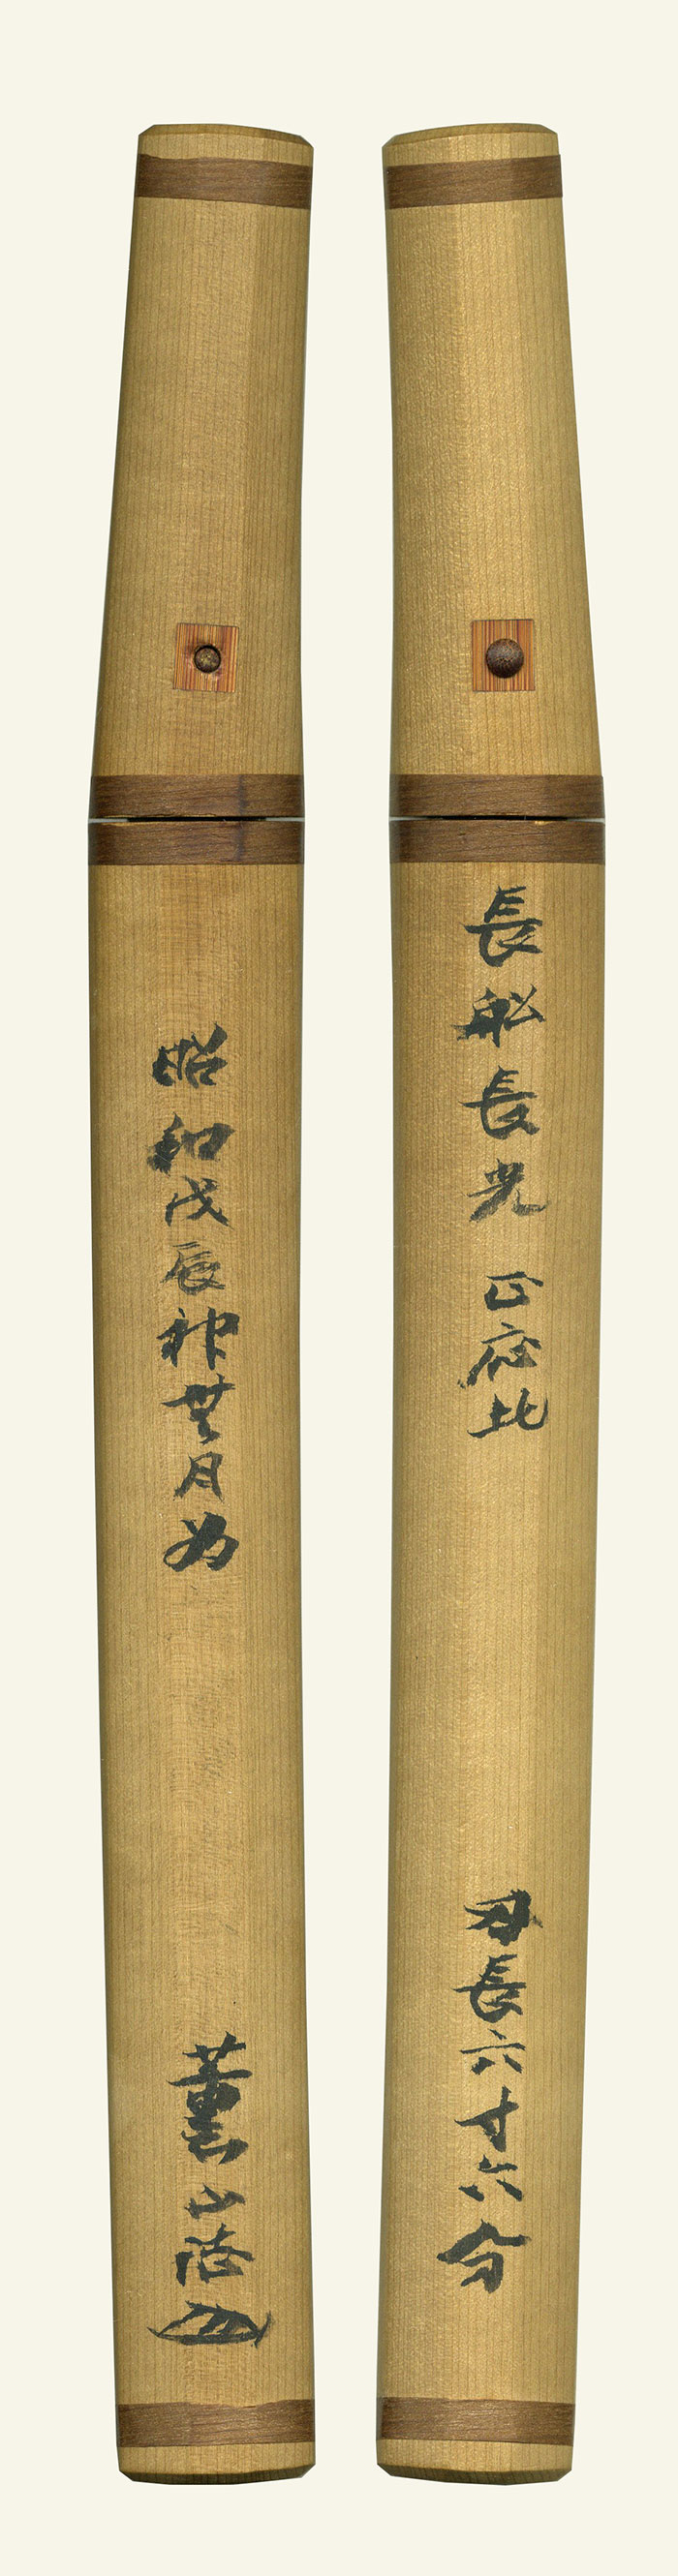 長舩長光 正応比
刃長六寸六分
昭和戊辰神無月為
薫山誌